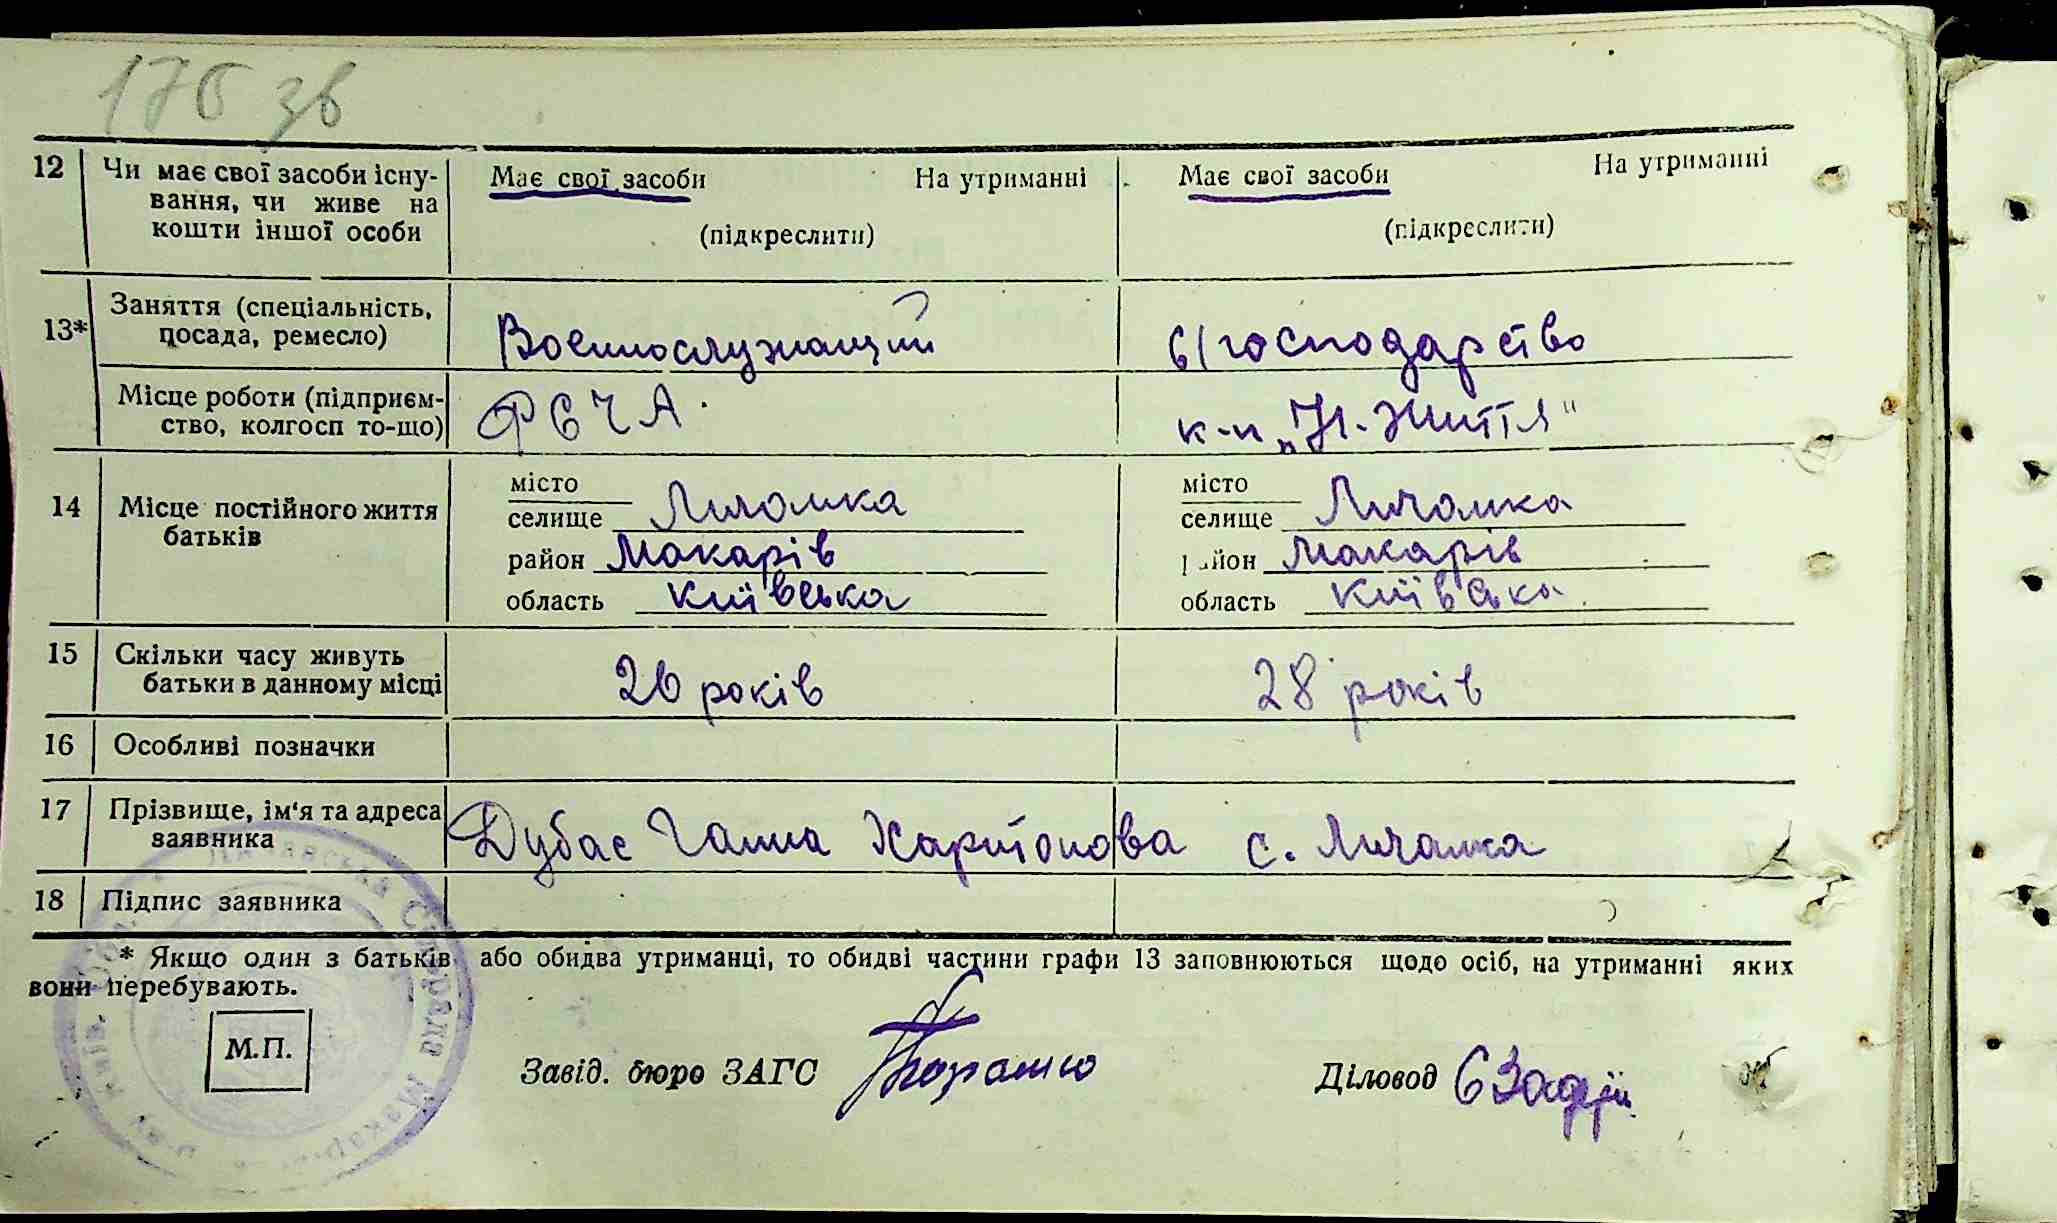 176 зв
12 Чи має свої засоби існу-
вання, чи живе на
кошти іншої особи
Має свої засоби На утриманні
(підкреслити)
Має свої засоби На утриманні
(підкреслити)
13* Заняття (спеціальність,
посада, ремесло)
Военнослужащий
с/господарство
Місце роботи (підприєм-
ство, колгосп то-що)
РСЧА
к-п „Н-Життя"
14 Місце постійного життя
батьків
місто
селище Личанка
район Макарів
область Київська
місто
селище Личанка
район Макарів
область Київська
15 Скільки часу живуть
батьки в данному місці
26 років
28 років
16 Особливі позначки
17 Прізвище, ім'я та адреса
заявника
Дубас Ганна Харитонова с. Личанка
18 Підпис заявника
* Якщо один з батьків або обидва утриманці, то обидві частини графи 13 заповнюються щодо осіб, на утриманні яких
вони перебувають.
М.П.
Завід. бюро ЗАГС
Діловод